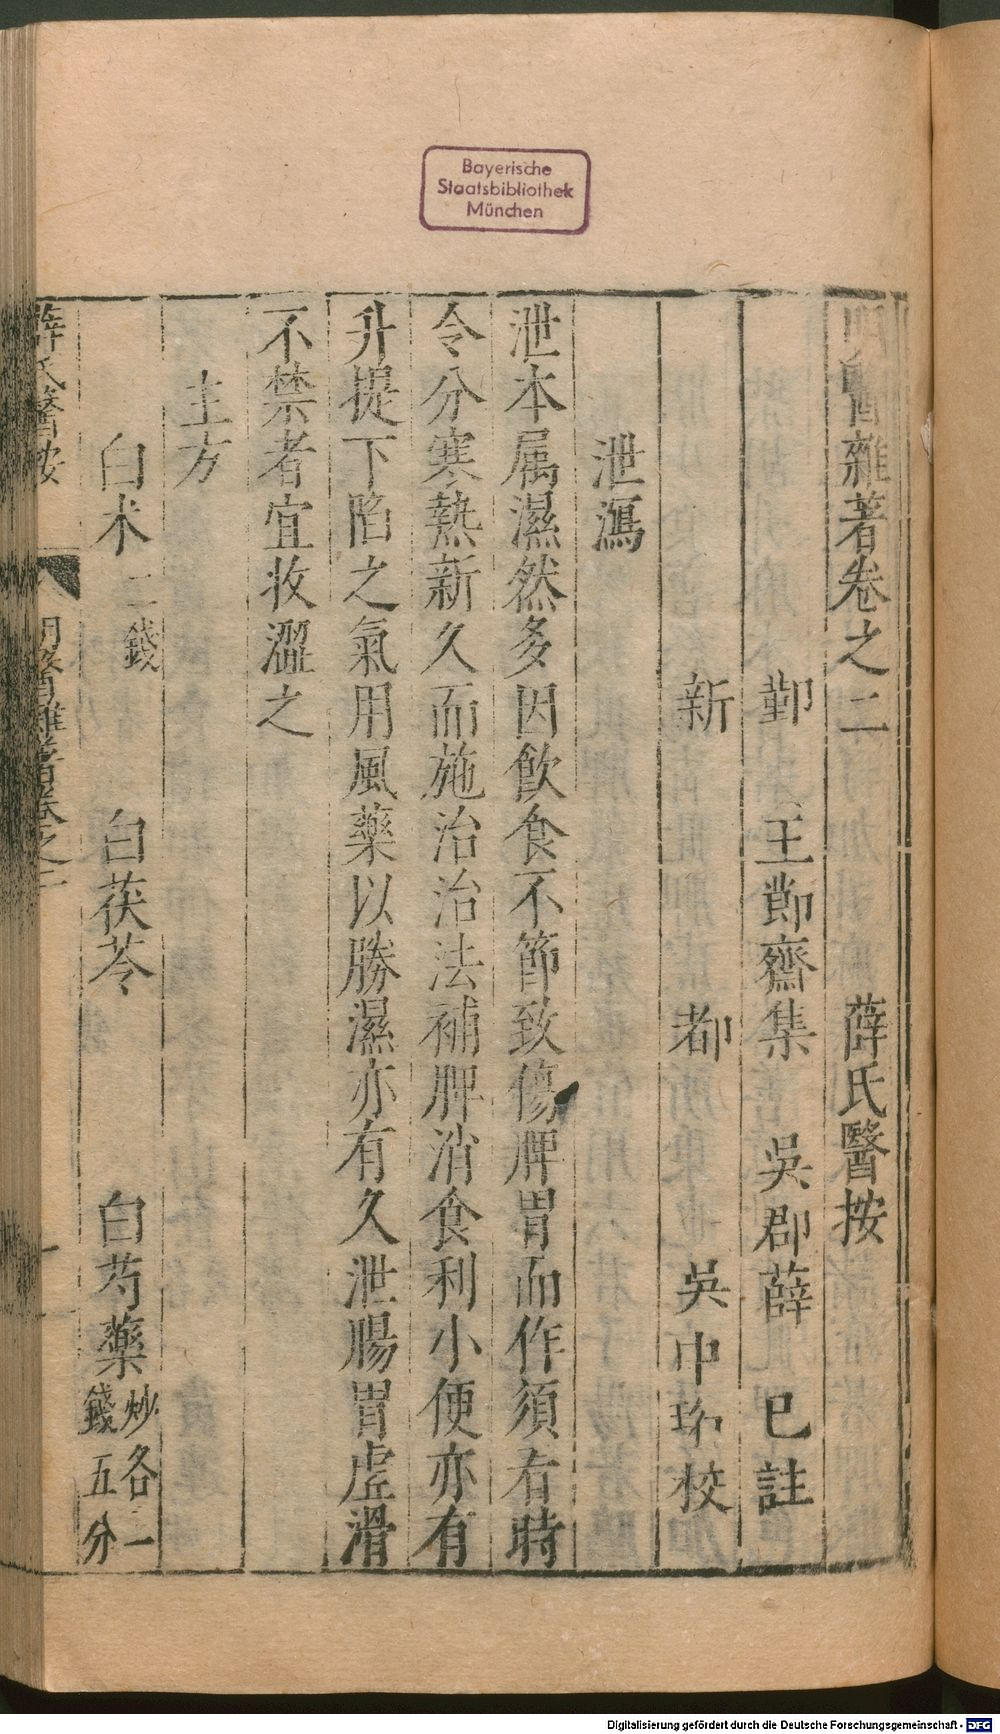 Bayerische
Staatsbibliothek
München
明醫雜著卷之二 薛氏醫按
鄞 王節齋集 吳郡薛 已註
新 都 吳中珩校
泄瀉
泄本属濕然多因飲食不節致傷脾胃而作須看時
令分寒熱新久而施治治法補脾消食利小便亦有
升提下陷之氣用風藥以勝濕亦有久泄腸胃虛滑
不禁者宜收澀之
主方
白术 二錢 白茯苓 白芍藥 炒各一錢五分
薛氏醫按 明醫雜著卷之二
Digitalisierung gefördert durch die Deutsche Forschungsgemeinschaft - DFG